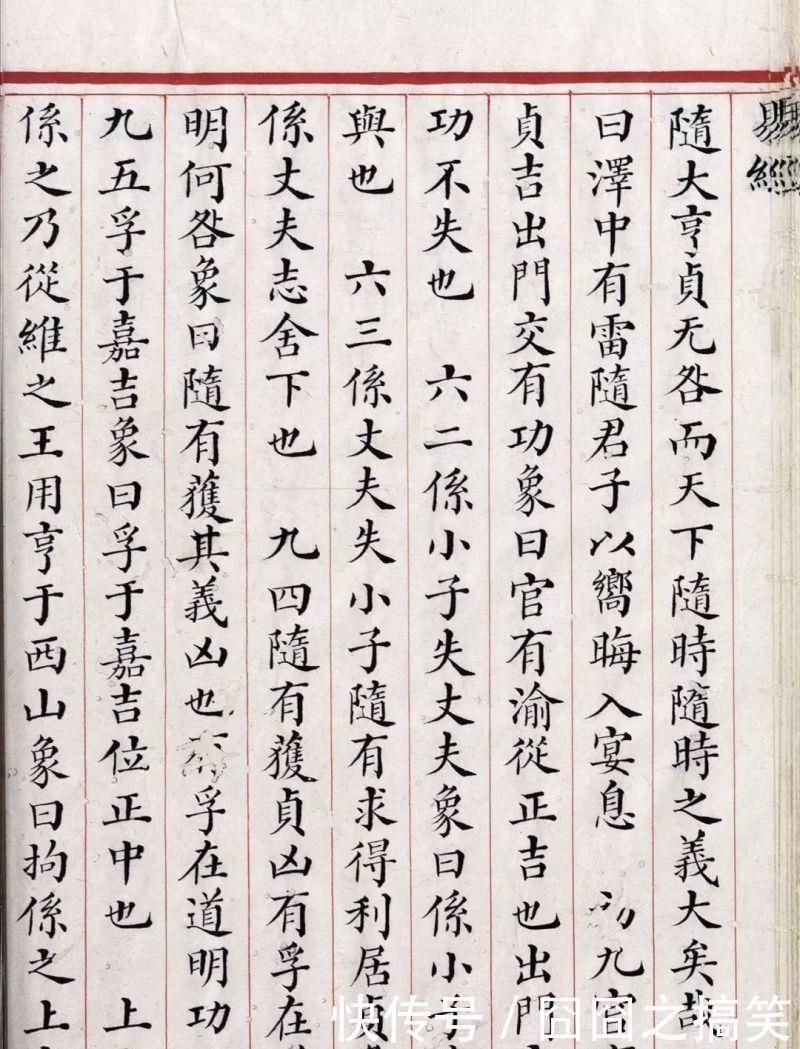 易經
隨大亨貞无咎而天下隨時隨時之義大矣哉
曰澤中有雷隨君子以嚮晦入宴息　初九官
貞吉出門交有功象曰官有渝從正吉也出門
功不失也　六二係小子失丈夫象曰係小子
與也　六三係丈夫失小子隨有求得利居貞
係丈夫志舍下也　九四隨有獲貞凶有孚在
明何咎象曰隨有獲其義凶也　孚在道明功
九五孚于嘉吉象曰孚于嘉吉位正中也　上
係之乃從維之王用亨于西山象曰拘係之上
快传号 / 囧囧之搞笑